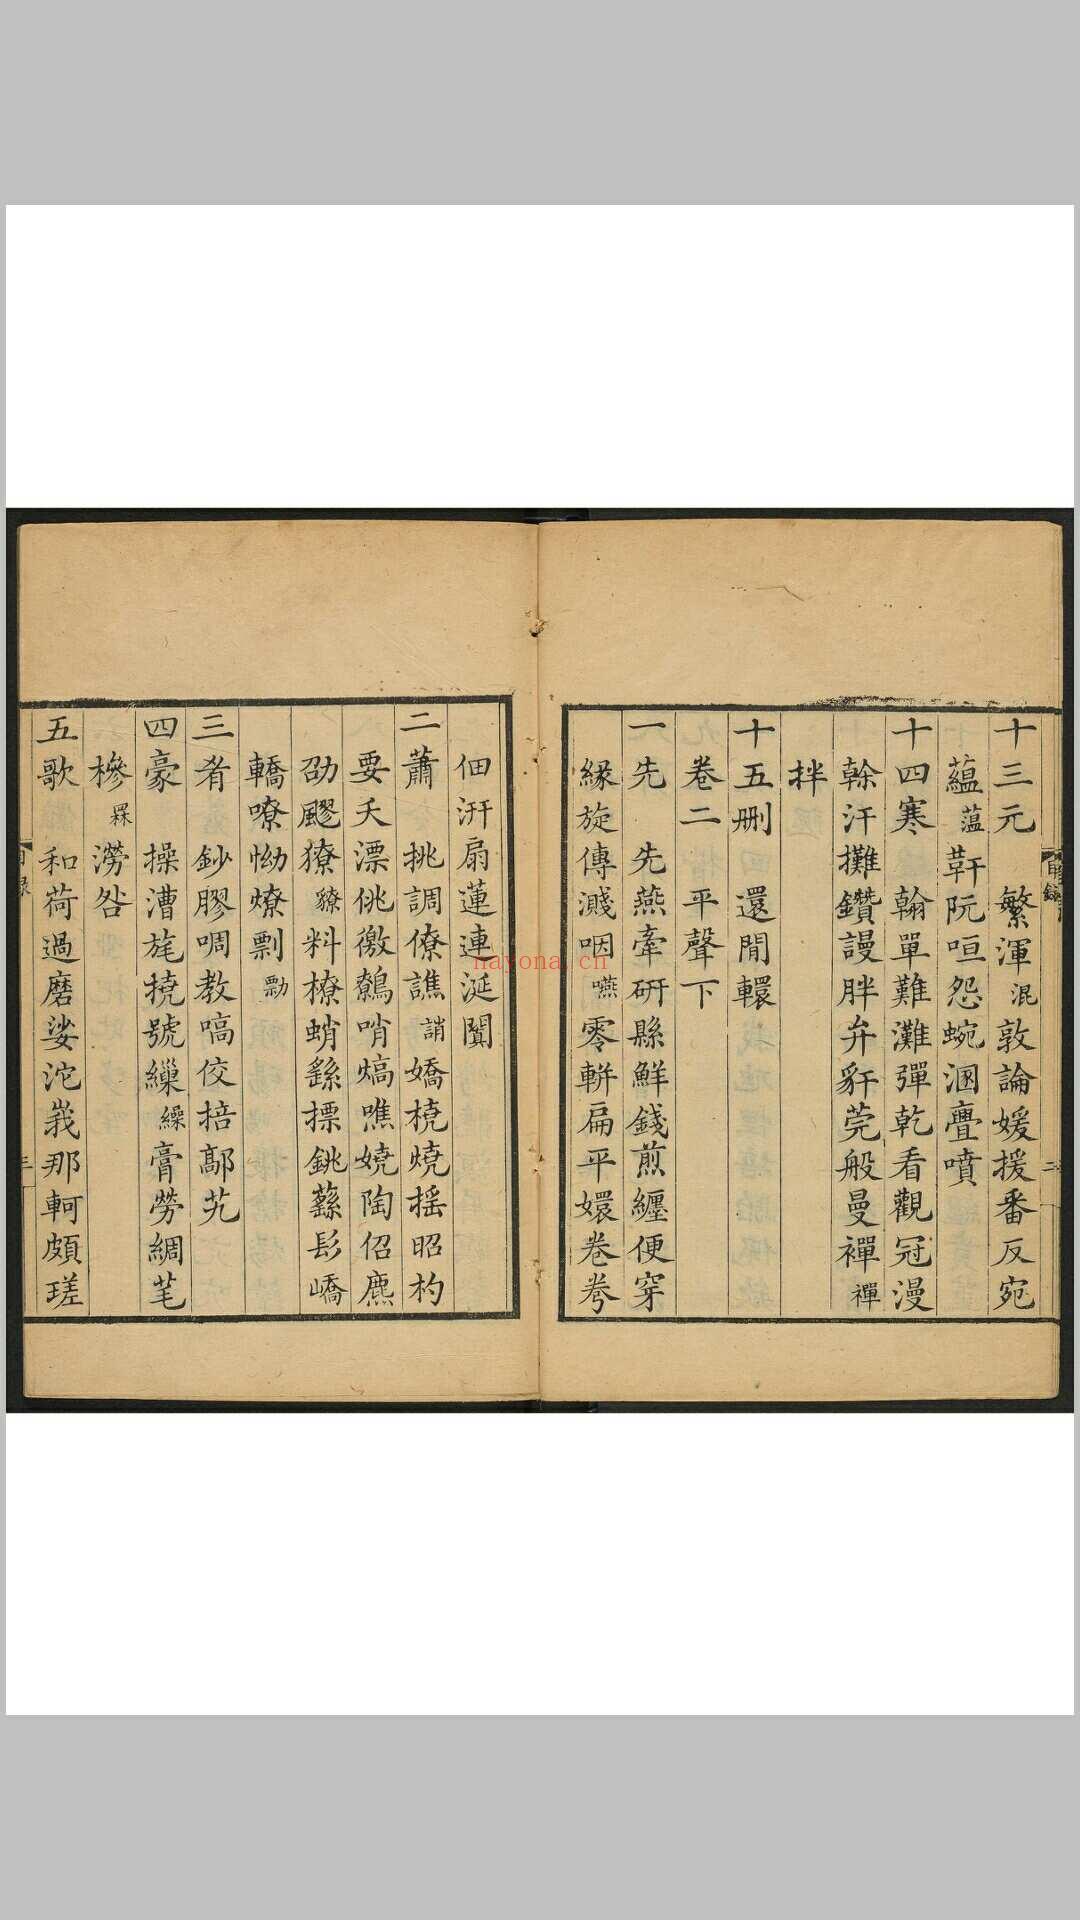 十三元 繁渾混敦論媛援番反宛
蘊薀䩑阮咺怨蜿溷亹噴
十四寒 翰單難灘彈乾看觀冠漫
榦汗攤鑽謾胖弁豻莞般曼襌禪
拌
十五刪 還閒轘
卷二 平聲下
一先 先燕牽硏縣鮮錢煎纏便穿
緣旋傳濺咽嚥零輧扁平嬛卷弮
佃汧扇蓮連涎闐
二蕭 挑調僚譙誚嬌橈燒搖昭杓
要夭漂佻徼鷯哨熇噍嬈陶佋麃
劭飂獠料橑蛸繇摽銚蘨髟嶠
轎嘹怮燎剽勡
三肴 鈔膠啁教嗃佼掊鄗艽
四豪 操漕旄撓號繅繰膏勞綢芼
槮罧澇咎
五歌 和荷過磨娑沱峩那軻頗瑳
目錄
二
三
nayona.cn